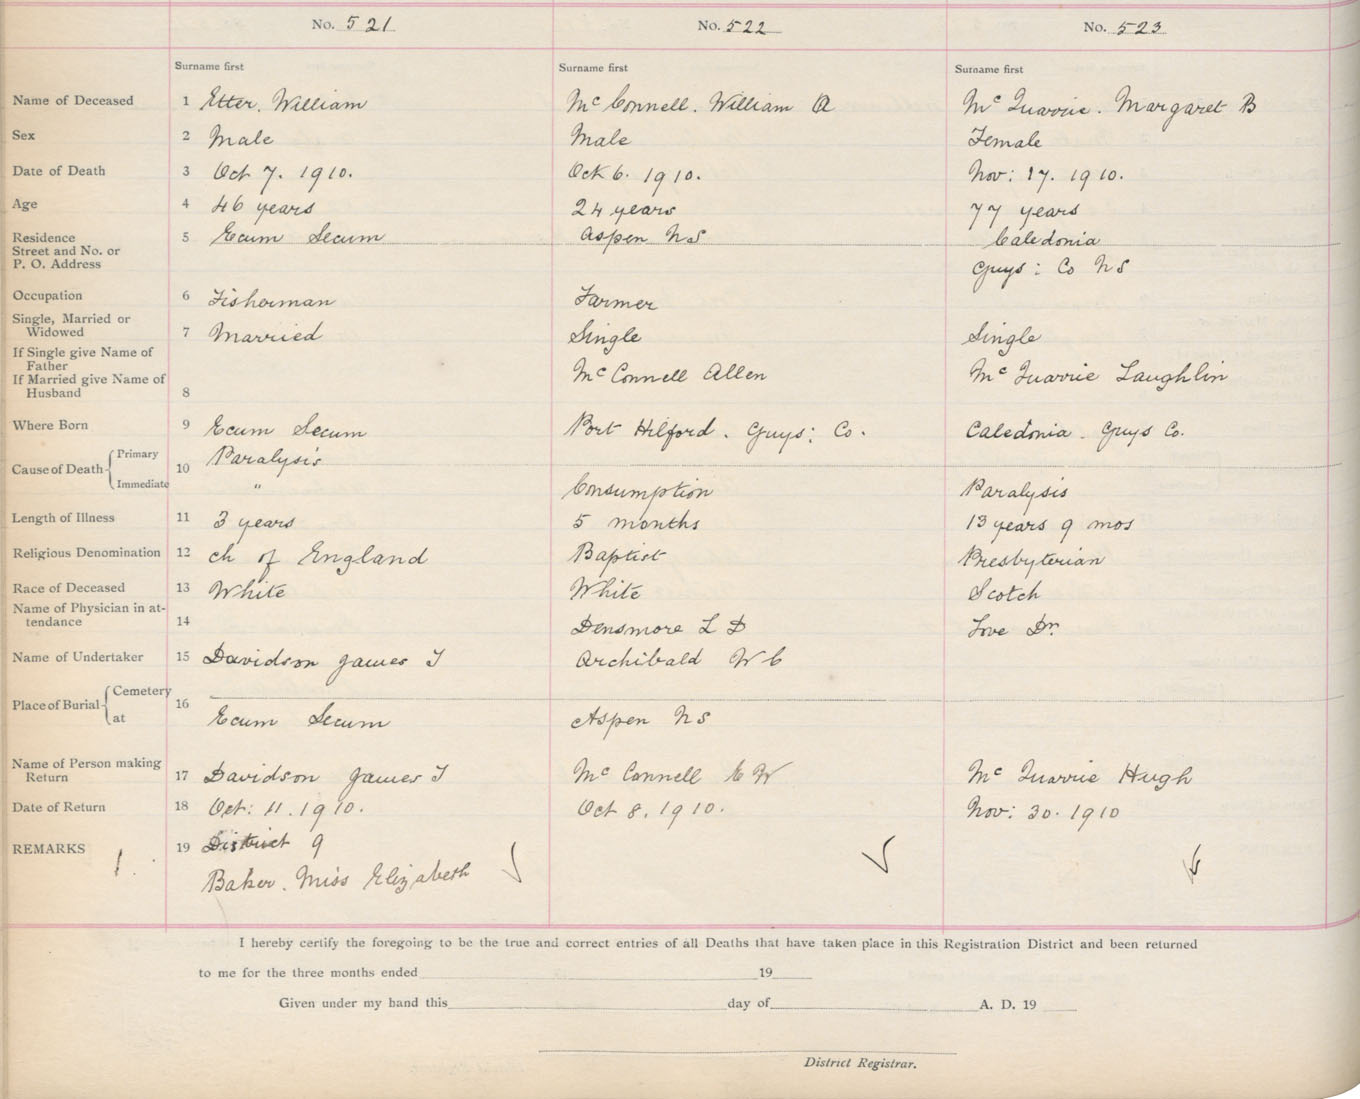 No. 521 No. 522 No. 523
Surname first Surname first Surname first
Name of Deceased 1 Etter. William Mc Connell. William A Mc Quarrie. Margaret B
Sex 2 Male Male Female
Date of Death 3 Oct 7. 1910. Oct 6. 1910. Nov: 17. 1910.
Age 4 46 years 24 years 77 years
Residence 5 Ecum Secum Aspen NS Caledonia
Street and No. or
P. O. Address Guys: Co NS
Occupation 6 Fisherman Farmer
Single, Married or
Widowed 7 Married Single Single
If Single give Name of
Father Mc Connell Allen Mc Quarrie Laughlin
If Married give Name of
Husband 8
Where Born 9 Ecum Secum Port Hilford. Guys: Co. Caledonia. Guys Co.
Cause of Death Primary 10 Paralysis
Immediate " Consumption Paralysis
Length of Illness 11 3 years 5 months 13 years 9 mos
Religious Denomination 12 ch of England Baptist Presbyterian
Race of Deceased 13 White White Scotch
Name of Physician in at-
tendance 14 Densmore L D Love Dr.
Name of Undertaker 15 Davidson James T Archibald W C
Place of Burial Cemetery 16
at Ecum Secum Aspen NS
Name of Person making
Return 17 Davidson James T Mc Connell E W Mc Quarrie Hugh
Date of Return 18 Oct: 11. 1910. Oct 8. 1910. Nov: 30. 1910
REMARKS 19 District 9
Baker. Miss Elizabeth
I hereby certify the foregoing to be the true and correct entries of all Deaths that have taken place in this Registration District and been returned
to me for the three months ended 19
Given under my hand this day of A. D. 19
District Registrar.